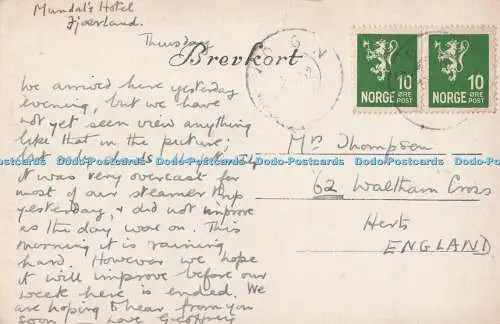 Mundal's Hotel
Fjaerland.
Thursday
Brevkort
We arrived here yesterday
evening, but we have
not yet seen view anything
like that in the picture;
it was very overcast for
most of our steamer trip
yesterday, & did not improve
as the day wore on. This
morning it is raining
hard. However we hope
it will improve before our
week here is ended. We
are hoping to hear from you
soon — Love Geoffrey
10 10
NORGE ØRE POST NORGE ØRE POST
Mrs Thompson
62 Waltham Cross
Herts
ENGLAND
Dodo-Postcards Dodo-Postcards Dodo-Postcards Dodo-Postcards Dodo-Postcards Dodo-Postcards